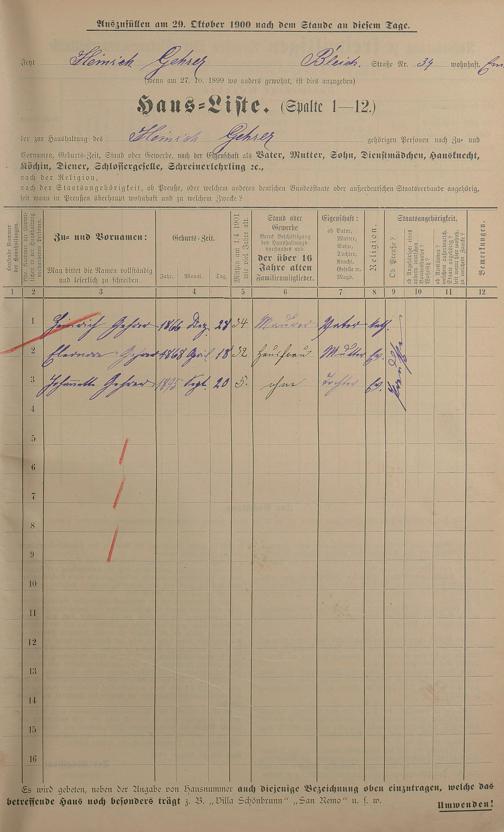 Auszufüllen am 29. Oktober 1900 nach dem Stande an diesem Tage.
Jetzt Heinrich Gehrer Bleich Straße Nr. 34 wohnhaft, Ems
(wenn am 27. 10. 1899 wo anders gewohnt, ist dies anzugeben)
Haus-Liste. (Spalte 1—12.)
der zur Haushaltung des Heinrich Gehrer gehörigen Personen nach Zu- und
Vornamen, Geburts-Zeit, Stand oder Gewerbe, nach der Eigenschaft als Vater, Mutter, Sohn, Dienstmädchen, Hausknecht,
Köchin, Diener, Schlossergeselle, Schreinerlehrling ec.,
nach der Religion,
nach der Staatsangehörigkeit, ob Preuße, oder welchem anderen deutschen Bundesstaate oder außerdeutschen Staatsverbande angehörig,
seit wann in Preußen überhaupt wohnhaft und zu welchem Zwecke?
Zu- und Vornamen:
Man bittet die Namen vollständig und leserlich zu schreiben
Geburts-Zeit.
Jahr. Monat. Tag.
Stand oder Gewerbe
der über 16 Jahre alten Familienmitglieder.
Eigenschaft:
ob Vater, Mutter, Sohn, Tochter, Knecht, Geselle u. Magd.
Religion.
Staatsangehörigkeit.
Ob Preuße?
Bemerkungen.
1 2 3 4 5 6 7 8 9 10 11 12
1 Heinrich Gehrer 1866 Dez. 28 34 Maurer Vater kath.
2 Gehrer 1868 April 18 32 Hausfrau Mutter Ev.
3 Gehrer 1895 Sept. 20 5. ohne Tochter Ev.
4
5
6
7
8
9
10
11
12
13
14
15
16
Es wird gebeten, neben der Angabe von Hausnummer auch diejenige Bezeichnung oben einzutragen, welche das
betreffende Haus noch besonders trägt z. B. „Villa Schönbrunn" „San Remo" u. s. w.
Umwenden!